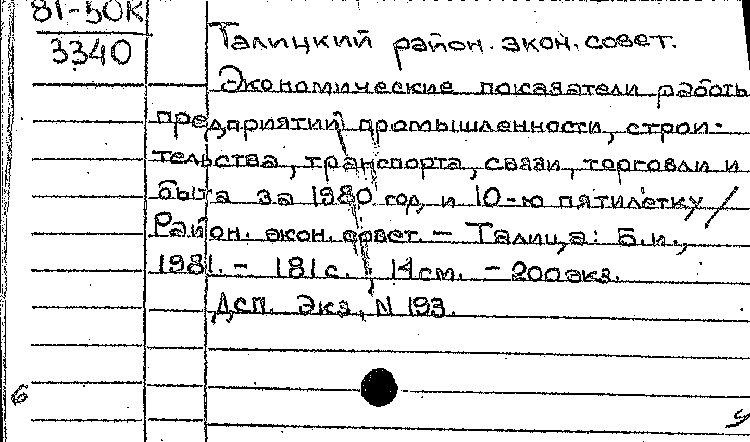 81-50К
3340
Талицкий район. экон. совет.
Экономические показатели работы
предприятий промышленности, строи-
тельства, транспорта, связи, торговли и
быта за 1980 год и 10-ю пятилетку /
Район. экон. совет. — Талица: Б.и.,
1981. - 181 с. 14 см. - 200 экз.
Дсп. Экз. N 193.
6